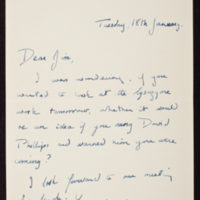 Tuesday, 18th January.
Dear Jim,
I was wondering, if you
wanted to look at the
work tomorrow, whether it would
be an idea if you rang David
Phillips and warned him you were
coming?
I look forward to our meeting